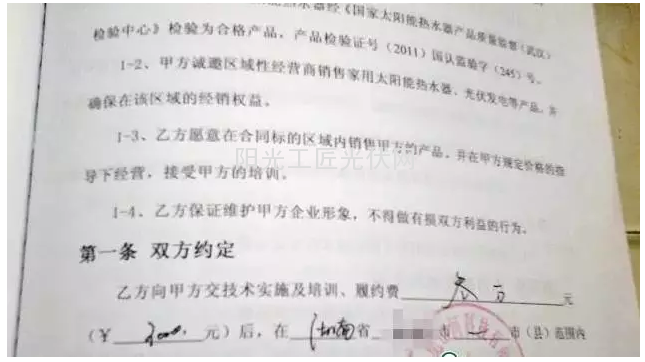 热水器经《国家太阳能热水器产品质量监督(武汉)
检验中心》检验为合格产品。产品检验证号(2011)国认监验字(245)号。
1-2、甲方诚邀区域性经营商销售家用太阳能热水器、光伏发电等产品,并
确保在该区域的经销权益。
1-3、乙方愿意在合同标的区域内销售甲方的产品,并在甲方规定价格的指
导下经营,接受甲方的培训。
阳光工匠光伏网
1-4、乙方保证维护甲方企业形象,不得做有损双方利益的行为。
第一条 双方约定
乙方向甲方交技术实施及培训、履约费 叁万 元
(¥ 元)后,在 省 市 市(县)范围内